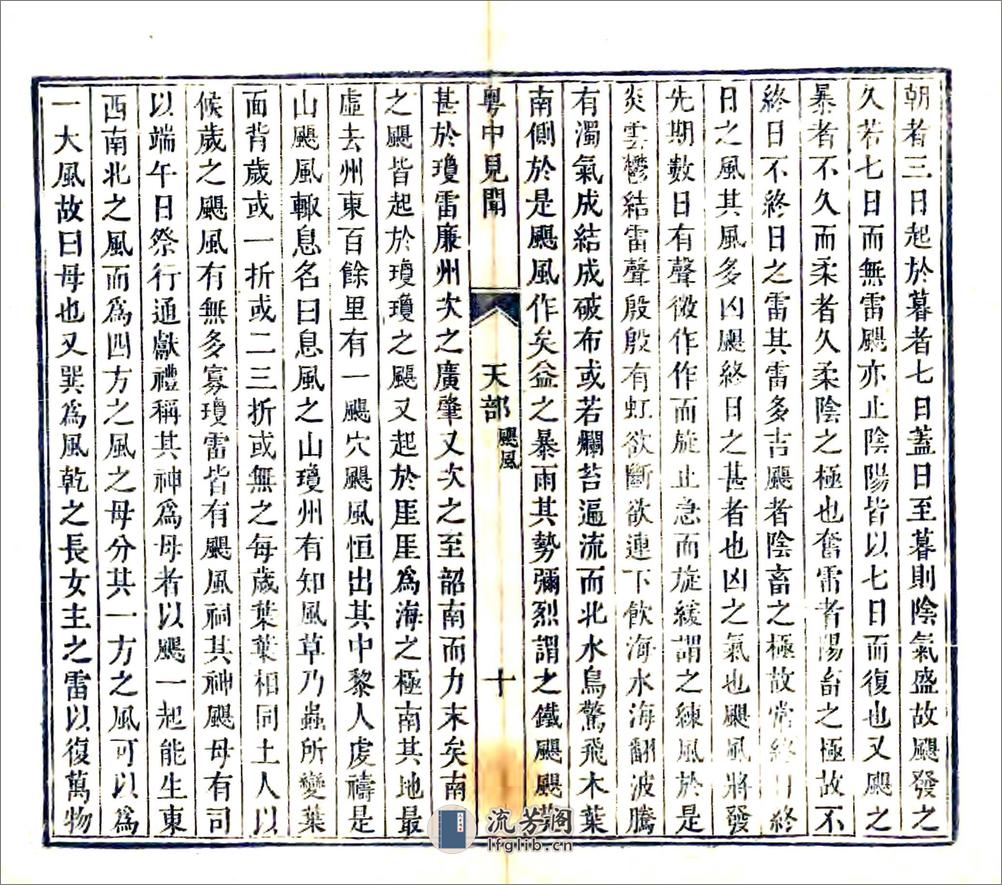 朝者三日起於暮者七日蓋日至暮則陰氣盛故颶發之
久若七日而無雷颶亦止陰陽皆以七日而復也又颶之
暴者不久而柔者久柔陰之極也奮雷者陽畜之極故不
終日不終日之雷其雷多吉颶者陰畜之極故常終日終
日之風其風多凶颶終日之甚者也凶之氣也颶風將發
先期數日有聲微作作而旋止急而旋緩謂之練風於是
炎雲鬱結雷聲殷殷有虹欲斷欲連下飲海水海翻波騰
有濁氣成結成破布或若爛苔遍流而北水鳥驚飛木葉
南側於是颶風作矣益之暴雨其勢彌烈謂之鐵颶颶
粵中見聞 天部 颶風 十
甚於瓊雷廉州次之廣肇又次之至韶南而力末矣南
之颶皆起於瓊瓊之颶又起於厓厓爲海之極南其地最
虛去州東百餘里有一颶穴颶風恒出其中黎人虔禱是
山颶風輙息名曰息風之山瓊州有知風草乃蟲所變葉
面背歲或一折或二三折或無之每歲葉葉相同土人以
候歲之颶風有無多寡瓊雷皆有颶風祠其神颶母有司
以端午日祭行通獻禮稱其神爲母者以颶一起能生東
西南北之風而爲四方之風之母分其一方之風可以爲
一大風故曰母也又巽爲風乾之長女主之雷以復萬物
流芳閣
lfglib.cn